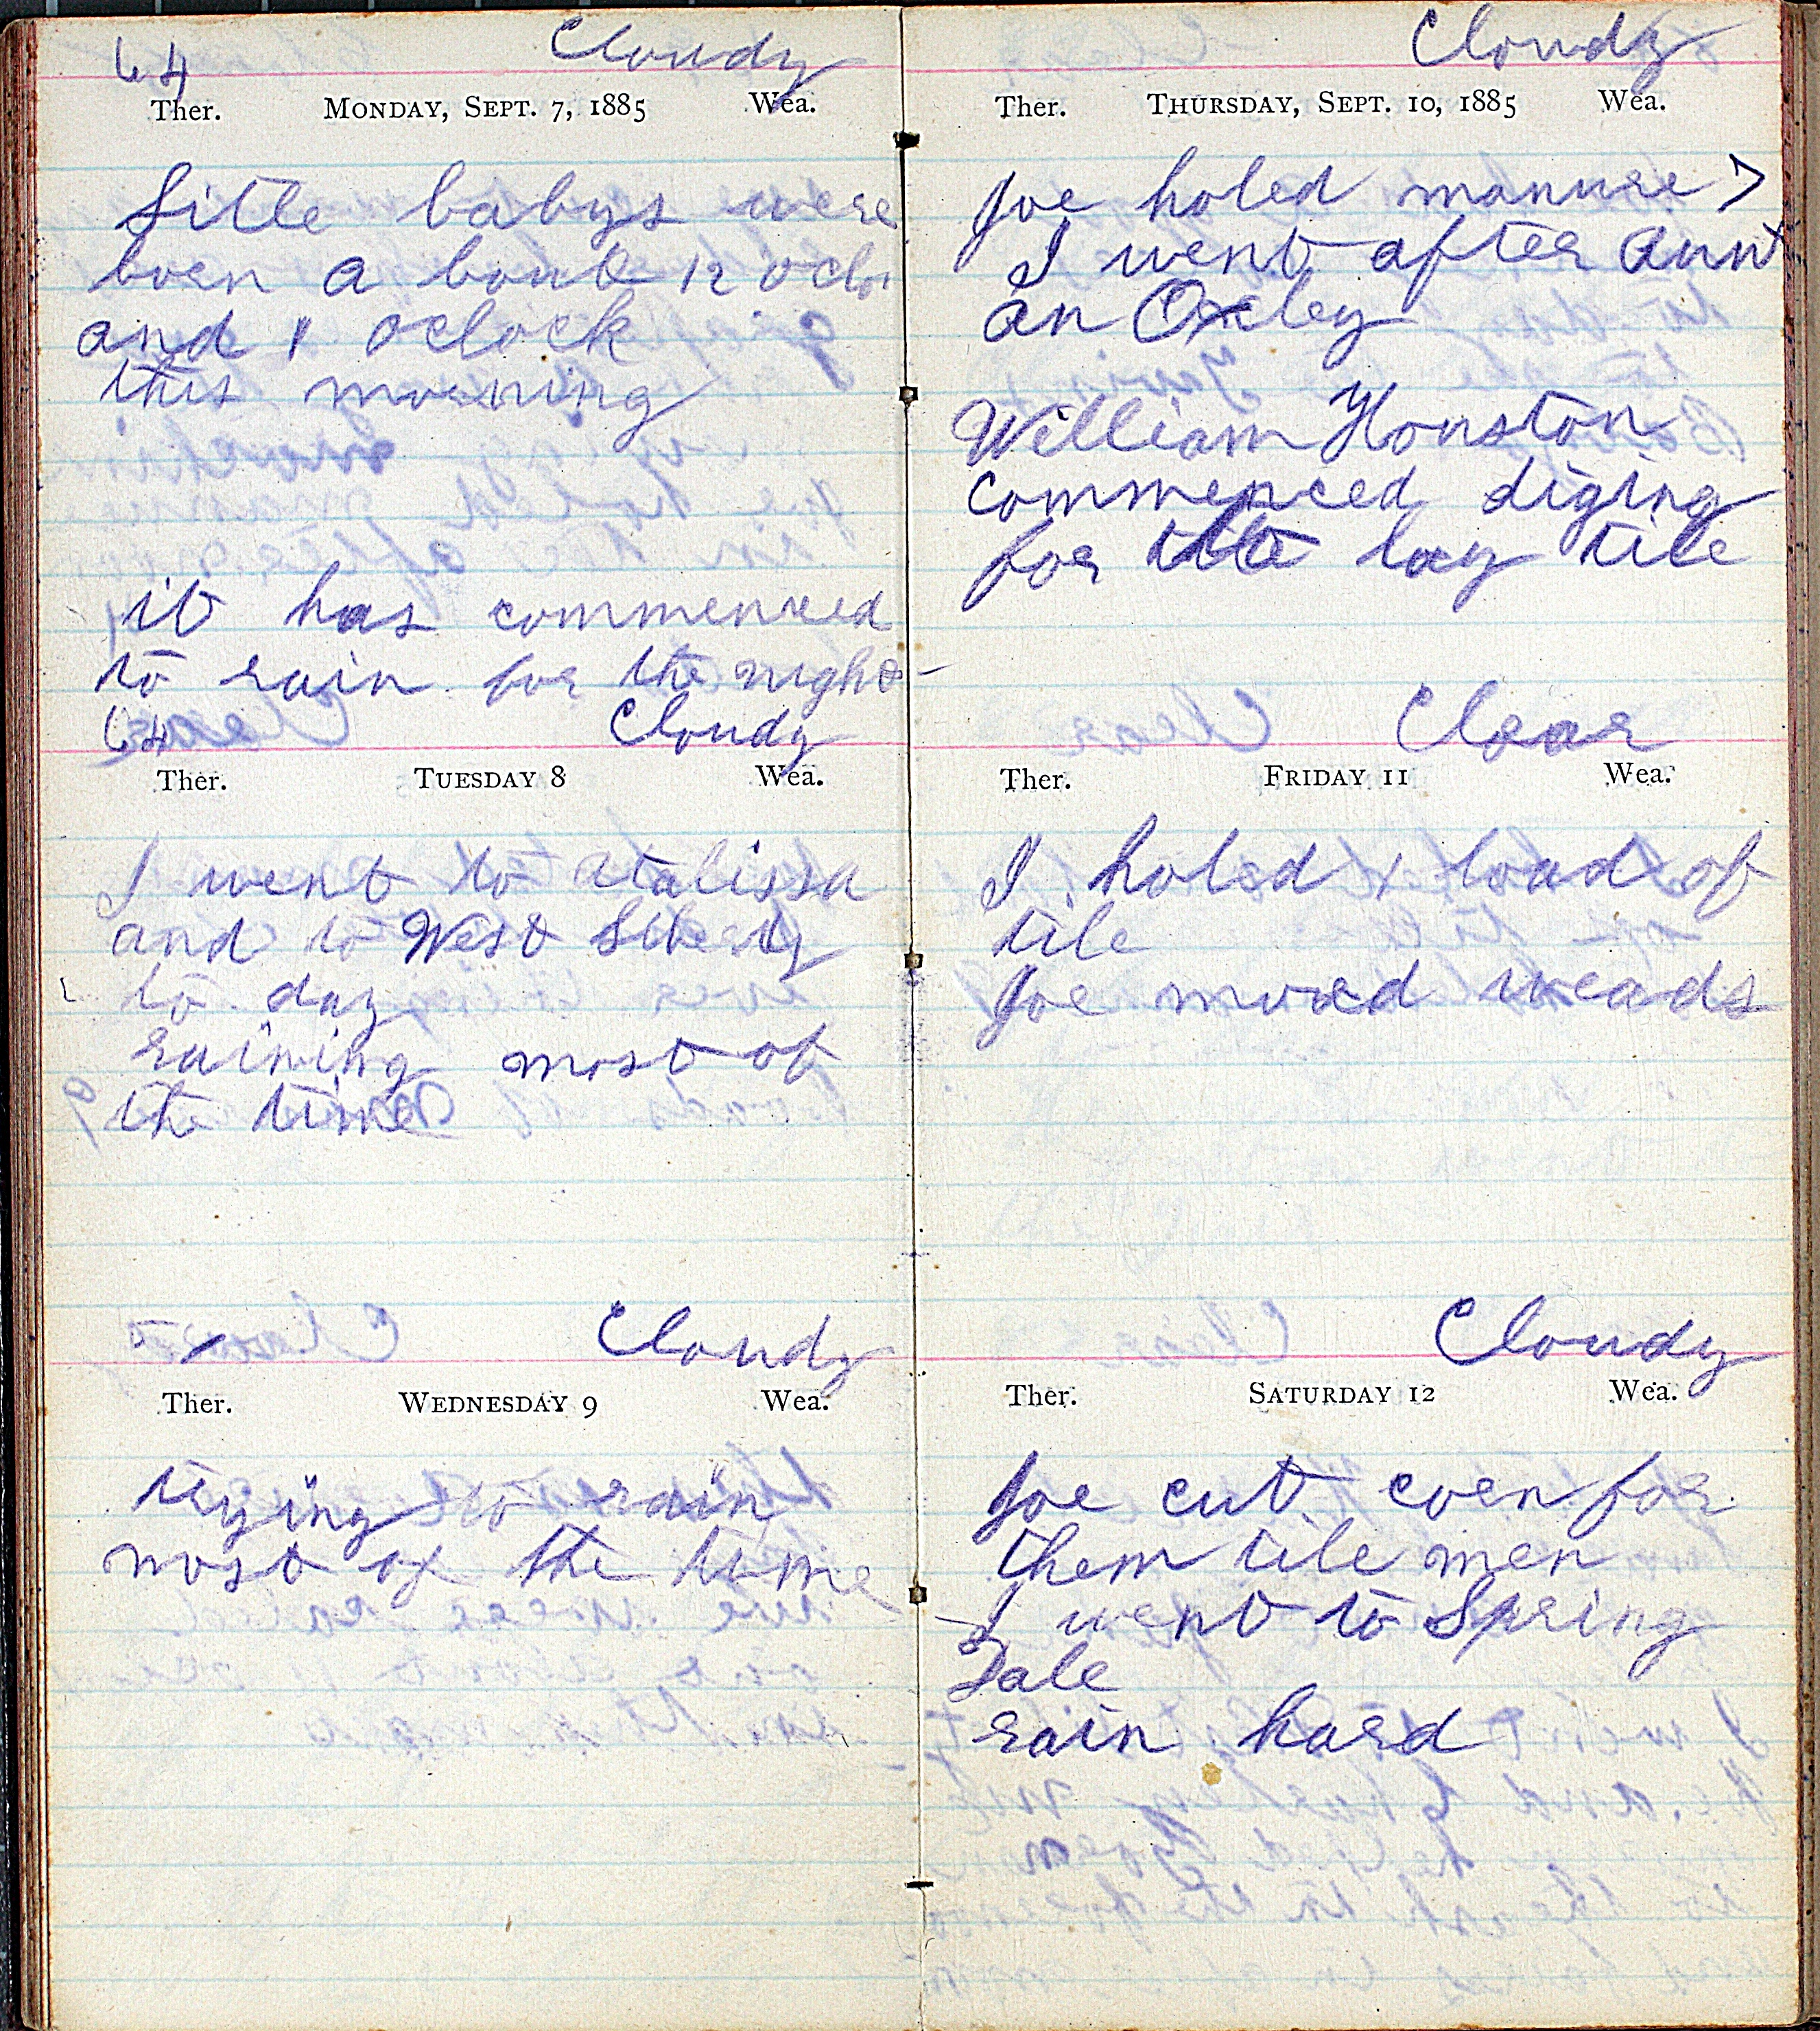 64 Cloudy
Ther. Monday, Sept. 7, 1885 Wea.
Litle babys were
born a bout 12 oclo
and 1 oclock
this morning
it has commenced
to rain for the night
64 Cloudy
Ther. Tuesday 8 Wea.
I went to atalissa
and to West Liberty
to day
raining most of
the time
Cloudy
Ther. Wednesday 9 Wea.
trying to rain
most of the time
Cloudy
Ther. Thursday, Sept. 10, 1885 Wea.
Joe holed manure >
I went after Aunt
an Oxley
William Houston
commenced diging
for to lay tile
Clear
Ther. Friday 11 Wea.
I holed 1 load of
tile
Joe moed weads
Cloudy
Ther. Saturday 12 Wea.
Joe cut corn for
them tile men
I went to Spring
Dale
rain hard